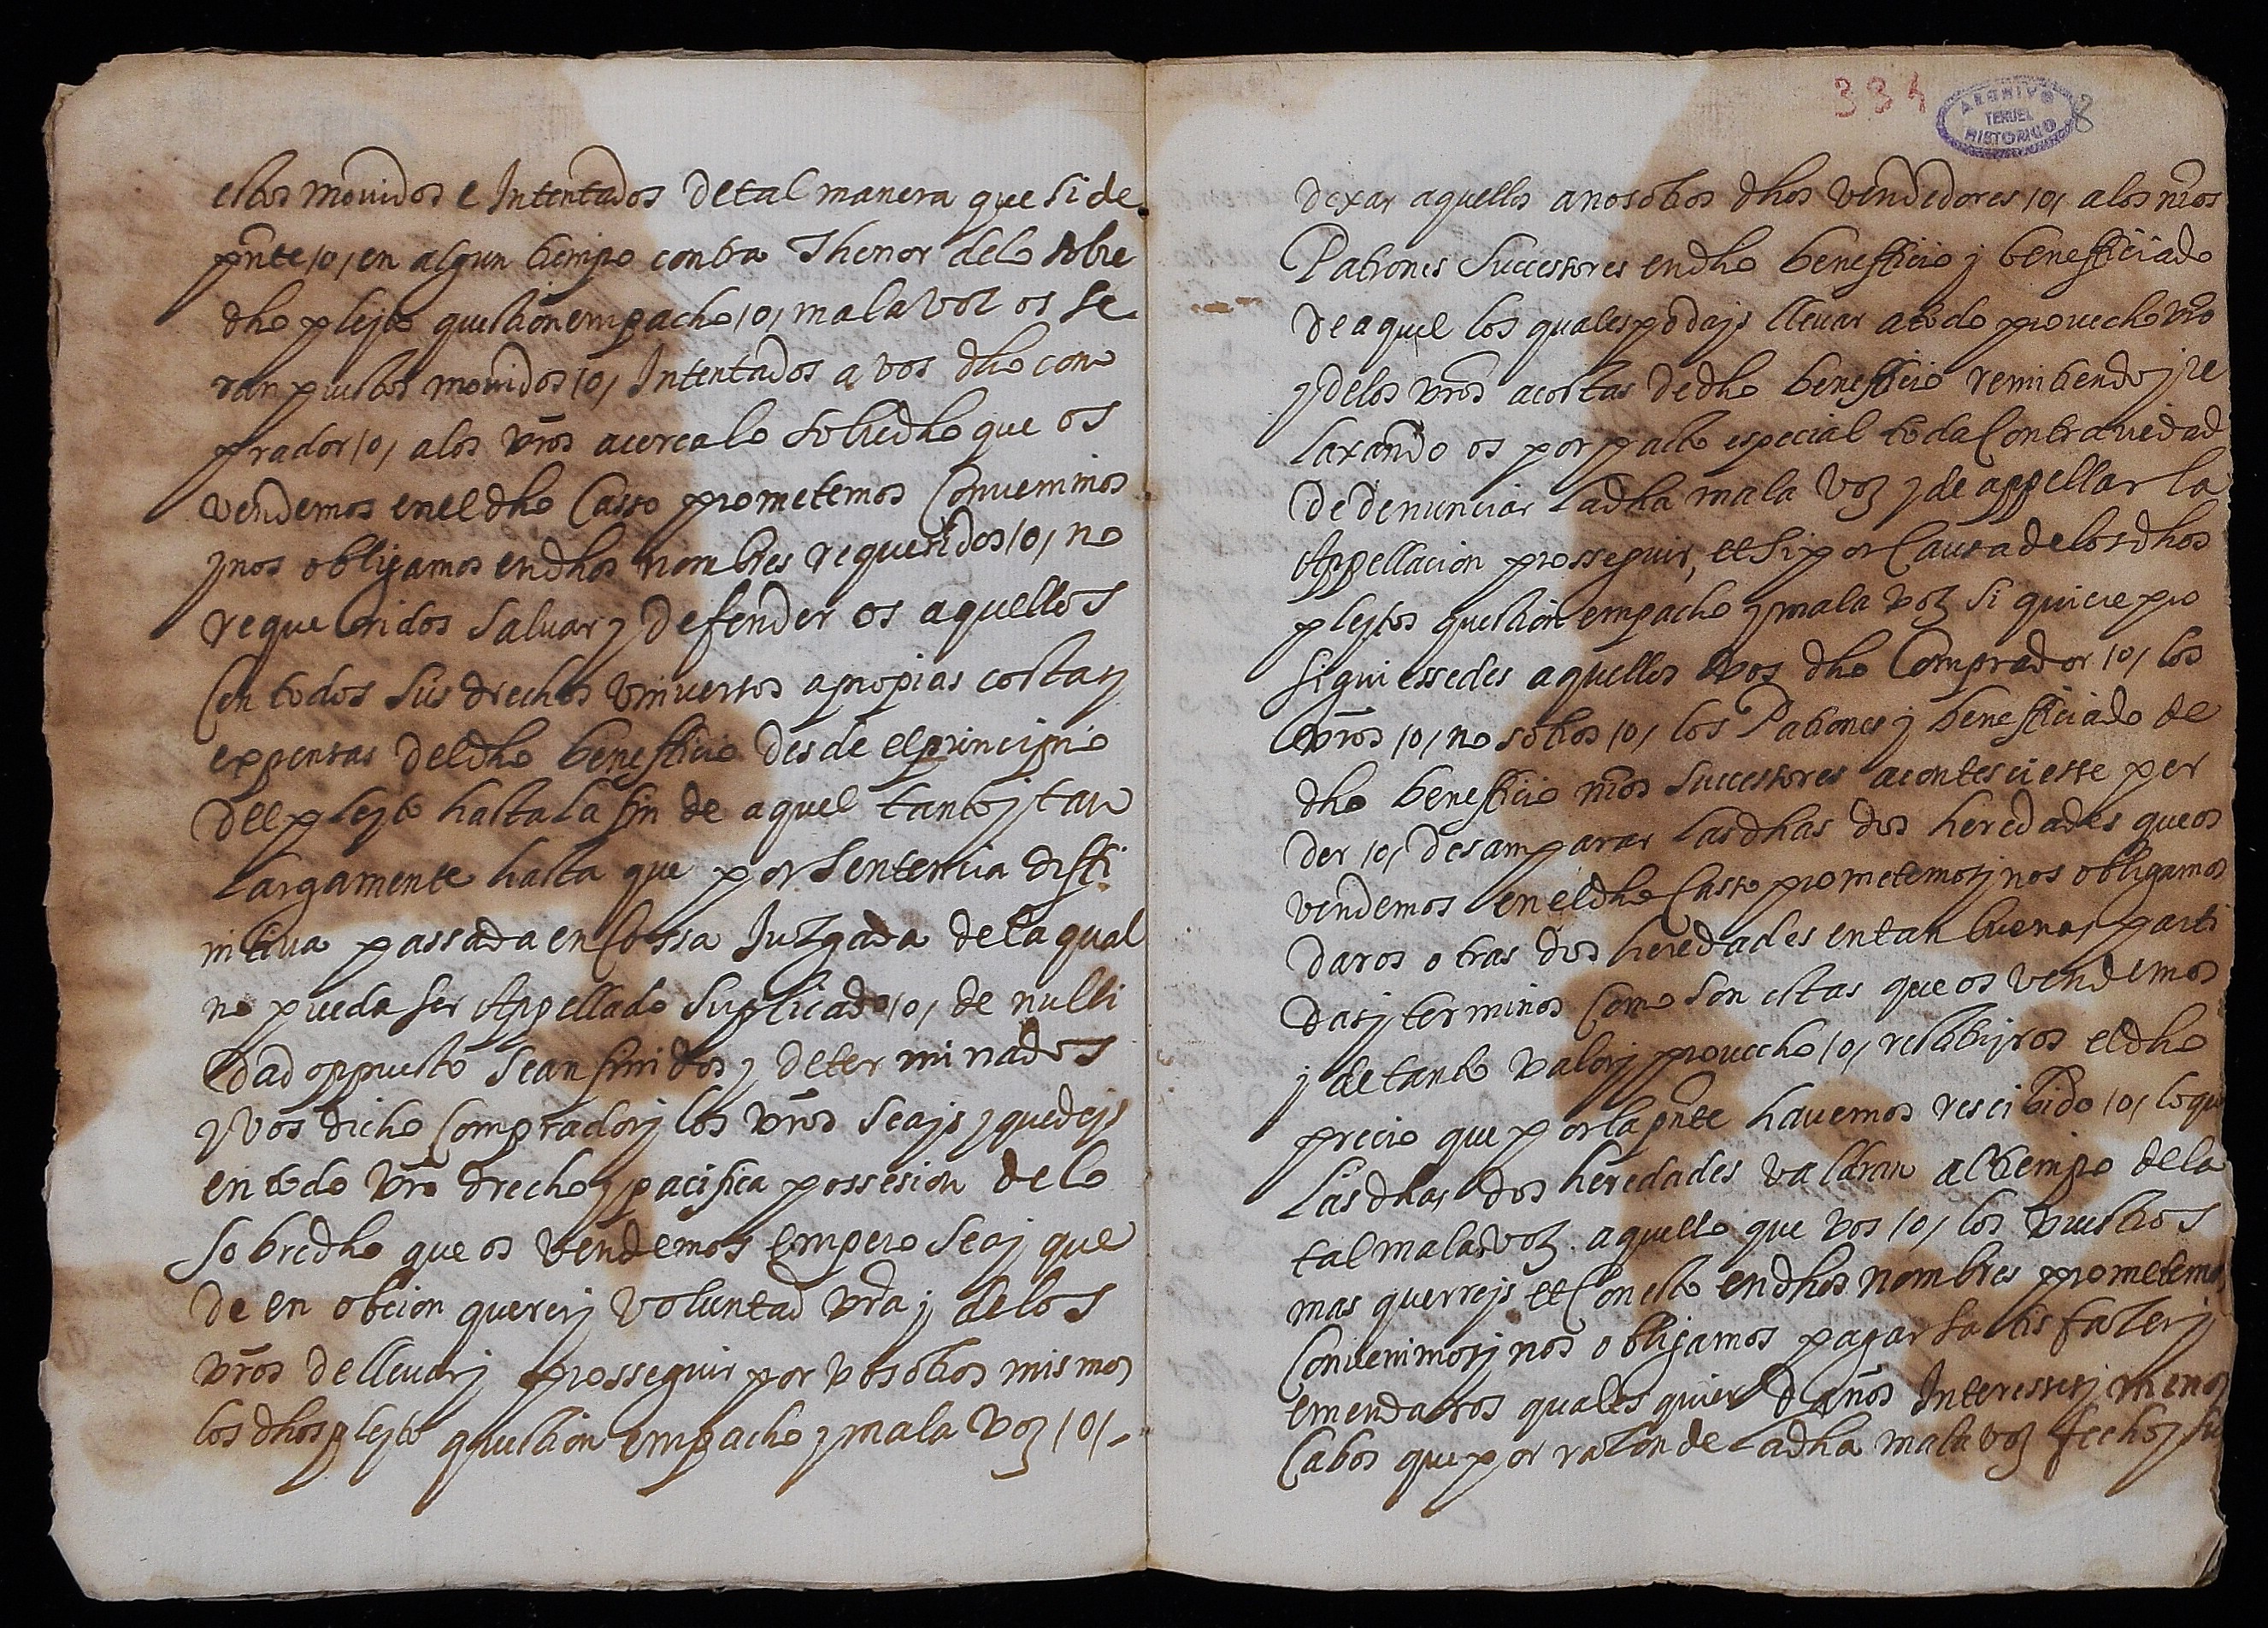 estos mouidos e Intentados de tal manera que si de
pñte /o/ en algun tiempo contra Thenor delo sobre
dho pleyto question empacho /o/ mala voz os se
ran puestos mouidos /o/ Intentados a vos dho com
prador /o/ alos vrõs acerca lo sobredho que os
vendemos enel dho Casso prometemos Conuenimos
y nos obligamos en dhos nombres requeridos /o/ no
requeridos saluar y defender os aquellos
Con todos sus drechos vniuersos a propias costas y
expensas del dho benefficio desde el principio
del pleyto hasta la fin de aquel tanto y tan
Largamente hasta que por sentencia diffi
nitiua passada en Cossa Juzgada dela qual
no pueda ser Appellado Suplicado /o/ de nulli
dad oppuesto sean finidos y determinados
y vos dicho Comprador y los vrõs seays y quedeys
en todo vrõ drecho y pacifica possesion delo
sobredho que os vendemos empero sea y que
de en obcion querer y voluntad vrã y delos
vrõs de lleuar y prosseguir por vosotros mismos
los dhos pleyto question empacho y mala voz /o/
334
8
ARCHIVO
TERUEL
HISTORICO
dexar aquellos a nosotros dhos vendedores /o/ alos nrõs
Patrones Successores en dho benefficio y benefficiado
de aquel los quales podays lleuar a todo prouecho vrõ
y delos vrõs a costas de dho benefficio remitiendo y re
laxando os por pacto especial toda Contrariedad
de denunciar la dha mala voz y de appellar la
Appellacion prosseguir, et si por Causa delos dhos
pleytos question empacho y mala voz si quiere pro
siguiessedes aquellos vos dho Comprador /o/ los
vrõs /o/ nosotros /o/ los Patrones y benefficiado de
dho benefficio nrõs successores acontesciesse per
der /o/ desamparar las dhas dos heredades que os
vendemos enel dho Casso prometemos y nos obligamos
daros otras dos heredades en tan buenas parti
das y terminos Como son estas que os vendemos
y de tanto valor y prouecho /o/ restituyros el dho
precio que por la pñte hauemos rescibido /o/ lo que
Las dhas dos heredades valdran al tiempo dela
tal mala voz aquello que vos /o/ los vuestros
mas querreys et Con esto en dhos nombres prometemos
Conuenimos y nos obligamos pagar satisfazer y
emendaros quales quier daños Interesses y menos
Cabos que por razon de la dha mala voz fechos y